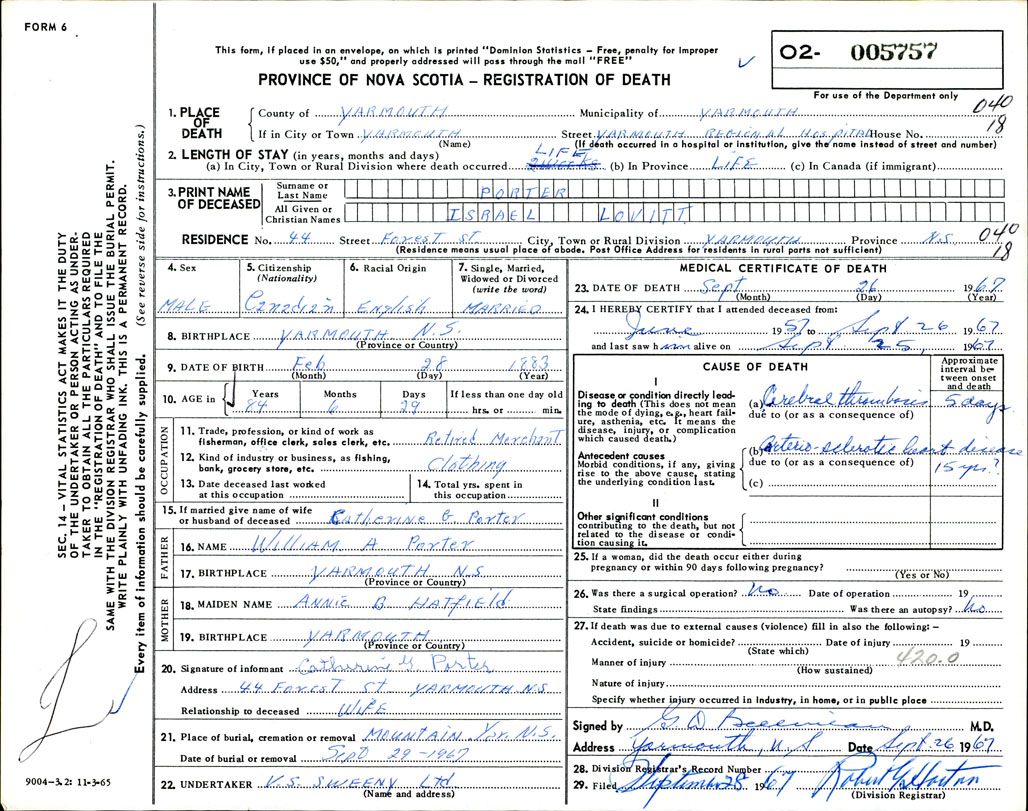 FORM 6
This form, if placed in an envelope, on which is printed "Dominion Statistics – Free, penalty for improper
use $50," and properly addressed will pass through the mail "FREE"
PROVINCE OF NOVA SCOTIA – REGISTRATION OF DEATH
O2- 005757
For use of the Department only
040
18
1. PLACE OF DEATH
County of YARMOUTH Municipality of YARMOUTH
If in City or Town YARMOUTH Street YARMOUTH REGIONAL HOSPITAL House No.
(Name) (If death occurred in a hospital or institution, give the name instead of street and number)
2. LENGTH OF STAY (in years, months and days)
(a) In City, Town or Rural Division where death occurred LIFE (b) In Province LIFE (c) In Canada (if immigrant)
3. PRINT NAME OF DECEASED
Surname or Last Name PORTER
All Given or Christian Names ISRAEL LOVITT
RESIDENCE No. 44 Street Forest St City, Town or Rural Division YARMOUTH Province N.S.
(Residence means usual place of abode. Post Office Address for residents in rural parts not sufficient)
040
18
4. Sex MALE
5. Citizenship (Nationality) Canadian
6. Racial Origin English
7. Single, Married, Widowed or Divorced (write the word) MARRIED
8. BIRTHPLACE YARMOUTH N.S.
(Province or Country)
9. DATE OF BIRTH Feb 28 1883
(Month) (Day) (Year)
10. AGE in Years 84 Months 6 Days 29 If less than one day old hrs. or min.
OCCUPATION
11. Trade, profession, or kind of work as fisherman, office clerk, sales clerk, etc. Retired Merchant
12. Kind of industry or business, as fishing, bank, grocery store, etc. Clothing
13. Date deceased last worked at this occupation
14. Total yrs. spent in this occupation
15. If married give name of wife or husband of deceased Catherine G. Porter
FATHER
16. NAME William A Porter
17. BIRTHPLACE YARMOUTH N.S
(Province or Country)
MOTHER
18. MAIDEN NAME ANNIE B HATFIELD
19. BIRTHPLACE YARMOUTH
(Province or Country)
20. Signature of informant Catherine G Porter
Address 44 Forest St YARMOUTH N.S
Relationship to deceased WIFE
21. Place of burial, cremation or removal MOUNTAIN Yar. N.S.
Date of burial or removal Sept 29 – 1967
22. UNDERTAKER V.S. SWEENY Ltd
(Name and address)
MEDICAL CERTIFICATE OF DEATH
23. DATE OF DEATH Sept 26 1967
(Month) (Day) (Year)
24. I HEREBY CERTIFY that I attended deceased from:
June 1957 to Sept 26 1967
and last saw him alive on Sept 25, 1967
CAUSE OF DEATH
Approximate interval between onset and death
I
Disease or condition directly leading to death (This does not mean the mode of dying, e.g., heart failure, asthenia, etc. It means the disease, injury, or complication which caused death.)
(a) Cerebral thrombosis 5 days
due to (or as a consequence of)
Antecedent causes
Morbid conditions, if any, giving rise to the above cause, stating the underlying condition last.
(b) Arterio-sclerotic heart disease
due to (or as a consequence of) 15 yrs.?
(c)
II
Other significant conditions
contributing to the death, but not related to the disease or condition causing it.
25. If a woman, did the death occur either during pregnancy or within 90 days following pregnancy?
(Yes or No)
26. Was there a surgical operation? No Date of operation 19
State findings Was there an autopsy? No
27. If death was due to external causes (violence) fill in also the following: –
Accident, suicide or homicide? Date of injury 19
(State which)
420.0
Manner of injury
(How sustained)
Nature of injury
Specify whether injury occurred in industry, in home, or in public place
Signed by G. D. M.D.
Address Yarmouth, N.S Date Sept. 26 1967
28. Division Registrar's Record Number
29. Filed September 28 1967 Robert Horton
(Division Registrar)
SEC. 14 – VITAL STATISTICS ACT MAKES IT THE DUTY
OF THE UNDERTAKER OR PERSON ACTING AS UNDER-
TAKER TO OBTAIN ALL THE PARTICULARS REQUIRED
IN THE "REGISTRATION OF DEATH" AND TO FILE THE
SAME WITH THE DIVISION REGISTRAR WHO SHALL ISSUE THE BURIAL PERMIT.
WRITE PLAINLY WITH UNFADING INK. THIS IS A PERMANENT RECORD.
Every item of information should be carefully supplied. (See reverse side for instructions.)
9004-3.2: 11-3-65